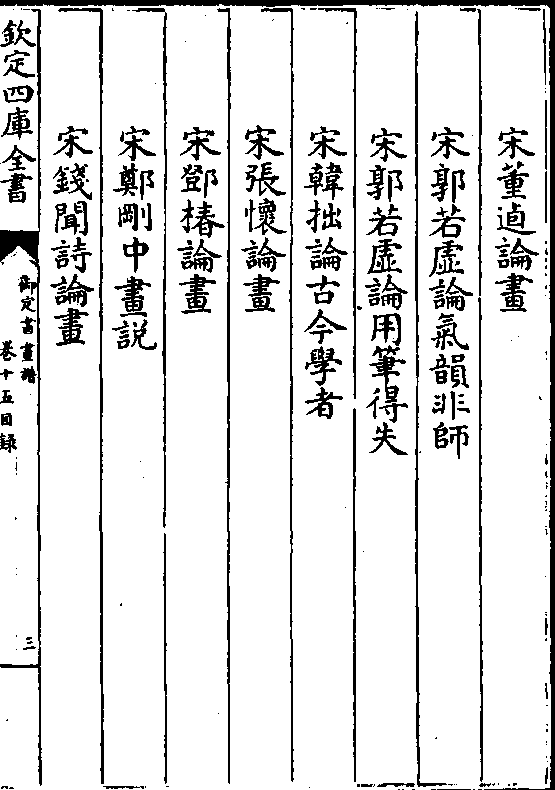 宋董逌論畫
宋郭若虛論氣韻非師
宋郭若虛論用筆得失
宋韓拙論古今學者
宋張懷論畫
宋鄧椿論畫
宋鄭剛中畫説
宋錢聞詩論畫
欽定四庫全書
御定書畫譜
卷十五目録
三